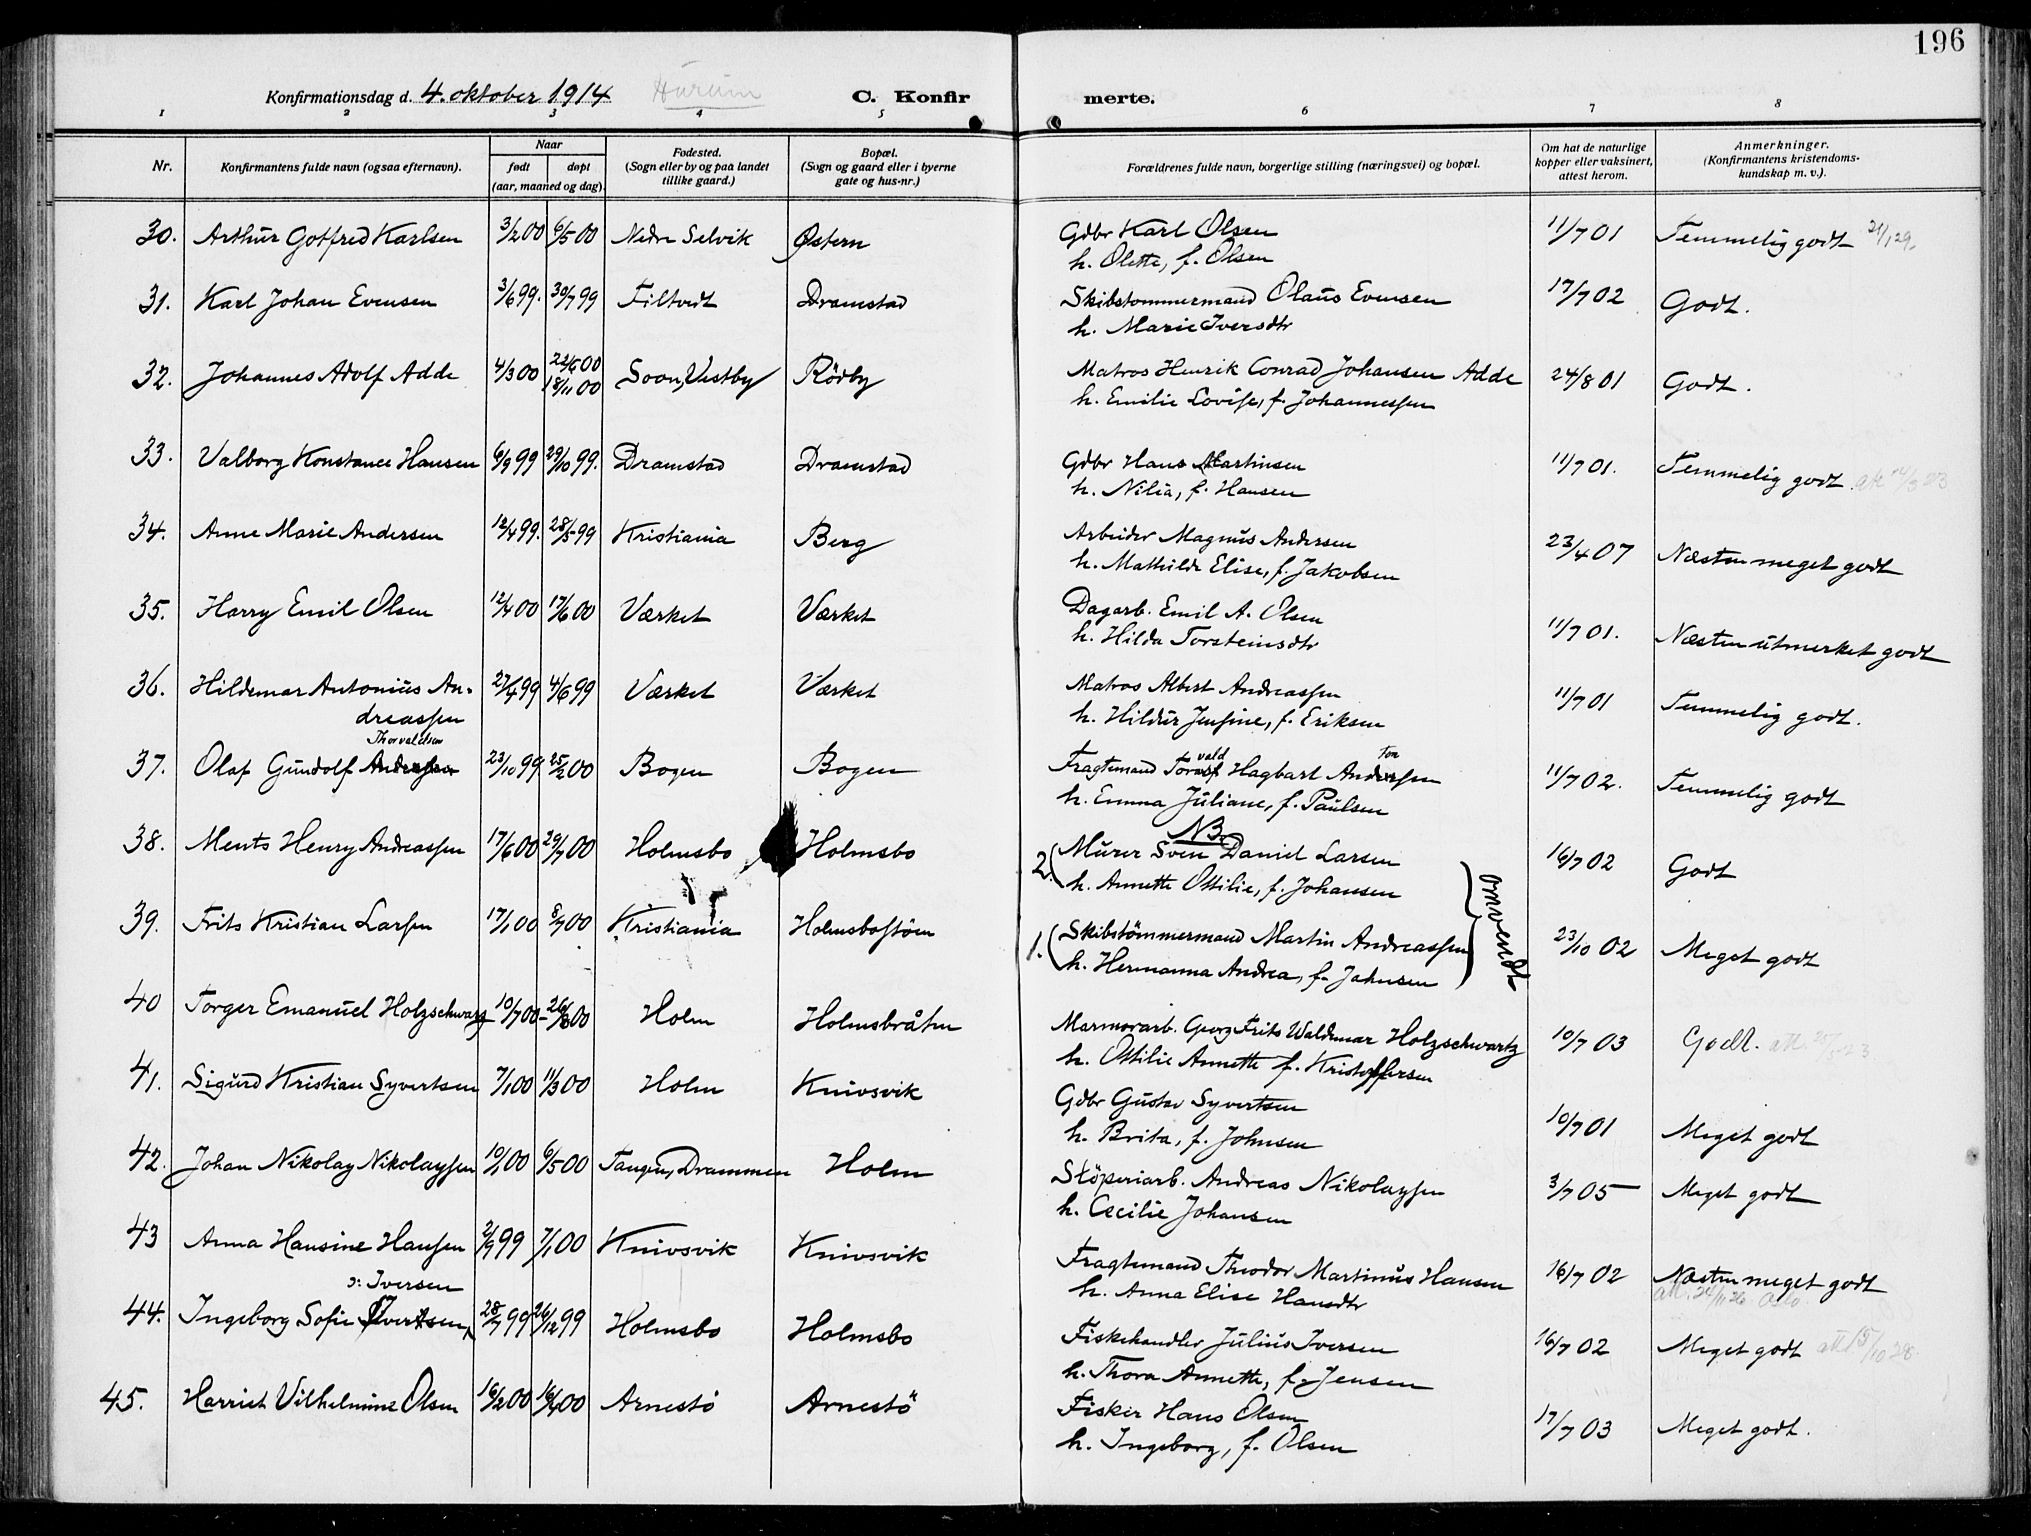 196
Konfirmationsdag d. 4. oktober 1914 Hurum C. Konfirmerte.
1 2 3 4 5 6 7 8
Nr. Konfirmantens fulde navn (ogsaa efternavn). Naar født døpt (aar, maaned og dag) Fødested. (Sogn eller by og paa landet tillike gaard.) Bopæl. (Sogn og gaard eller i byerne gate og hus-nr.) Forældrenes fulde navn, borgerlige stilling (næringsvei) og bopæl. Om hat de naturlige kopper eller vaksinert, attest herom. Anmerkninger. (Konfirmantens kristendomskundskap m. v.).
30. Arthur Gotfred Karlsen 3/2 00 6/5 00 Nedre Selvik Østern Gdbr Karl Olsen 11/7 01 Temmelig godt
h. Olette, f. Olsen
31. Karl Johan Evensen 3/6 99. 30/7 99 Filtvedt Dramstad Skibstømmermand Olaus Evensen 17/7 02 Godt.
h. Marie Iversdtr
32. Johannes Adolf Adde 4/3 00 22/6 00 18/11 00 Soon, Vestby Rödby Matros Henrik Conrad Johansen Adde 24/8 01 Godt.
h. Emilie Lovise, f. Johannessen
33. Valborg Konstance Hansen 6/9 99 29/10 99. Dramstad Dramstad Gdbr Hans Martinsen 11/7 01. Temmelig godt
h. Nilia, f. Hansen
34. Anne Marie Andersen 12/4 99. 28/5 99 Kristiania Berg Arbeider Magnus Andersen 23/4 07 Næsten meget godt
h. Mathilde Elise, f. Jakobsen
35. Harry Emil Olsen 12/4 00 17/6 00 Værket Værket Dagarb. Emil A. Olsen 11/7 01. Næsten utmerket godt
h. Hilda Torsteinsdtr
36. Hildemar Antonius Andreassen 27/4 99 4/6 99 Værket Værket Matros Albert Andreassen 11/7 01 Temmelig godt.
h. Hildur Jensine, f. Eriksen
Thorvaldsen
37. Olaf Gundolf 23/10 99 25/2 00 Bogen Bogen Fragtemand Torvald Hagbart 11/7 02. Temmelig godt
h. Emma Juliane, f. Paulsen
NB.
38. Ments Henry Andreassen 17/6 00 29/7 00 Holmsbo Holmsbo 2. (Murer Sven Daniel Larsen 16/7 02 Godt
h. Annette Ottilie, f. Johansen
omvendt
39. Frits Kristian Larsen 17/1 00 8/7 00 Kristiania Holmsbostöen 1. (Skibstömmermand Martin Andreassen 23/10 02 Meget godt
h. Hermanna Andrea, f. Jahnsen
40 Torger Emanuel Holzschwarz 10/7 00 – 26/8 00 Holm Holmsbråten Marmorarb. Georg Frits Waldemar Holzschwartz 10/7 03 Godt.
h. Ottilie Annette f. Kristoffersen
41. Sigurd Kristian Syvertsen 7/1 00 11/3 00 Holm Knivsvik Gdbr Gustav Syvertsen 10/7 01 Meget godt
h. Brita, f. Johnsen
42. Johan Nikolay Nikolaysen 10/1 00 6/5 00 Tangen, Drammen Holm Støperiarb. Andreas Nikolaysen 3/7 05 Meget godt
h. Cecilie Johansen
43 Anna Hansine Hansen 2/9 99 7/1 00 Knivsvik Knivsvik Fragtemand Theodor Martinus Hansen 16/7 02 Næsten meget godt
h. Anna Elise Hansdtr
ɔ: Iversen
44. Ingeborg Sofie Syvertsen, 28/7 99 26/12 99 Holmsbo Holmsbo Fiskehandler Julius Iversen 16/7 02 Meget godt
h. Thora Annette, f. Jensen
45. Harriet Vilhelmine Olsen 16/2 00 16/4 00 Arnestö Arnestö Fisker Hans Olsen 17/7 03 Meget godt.
h. Ingeborg, f. Olsen